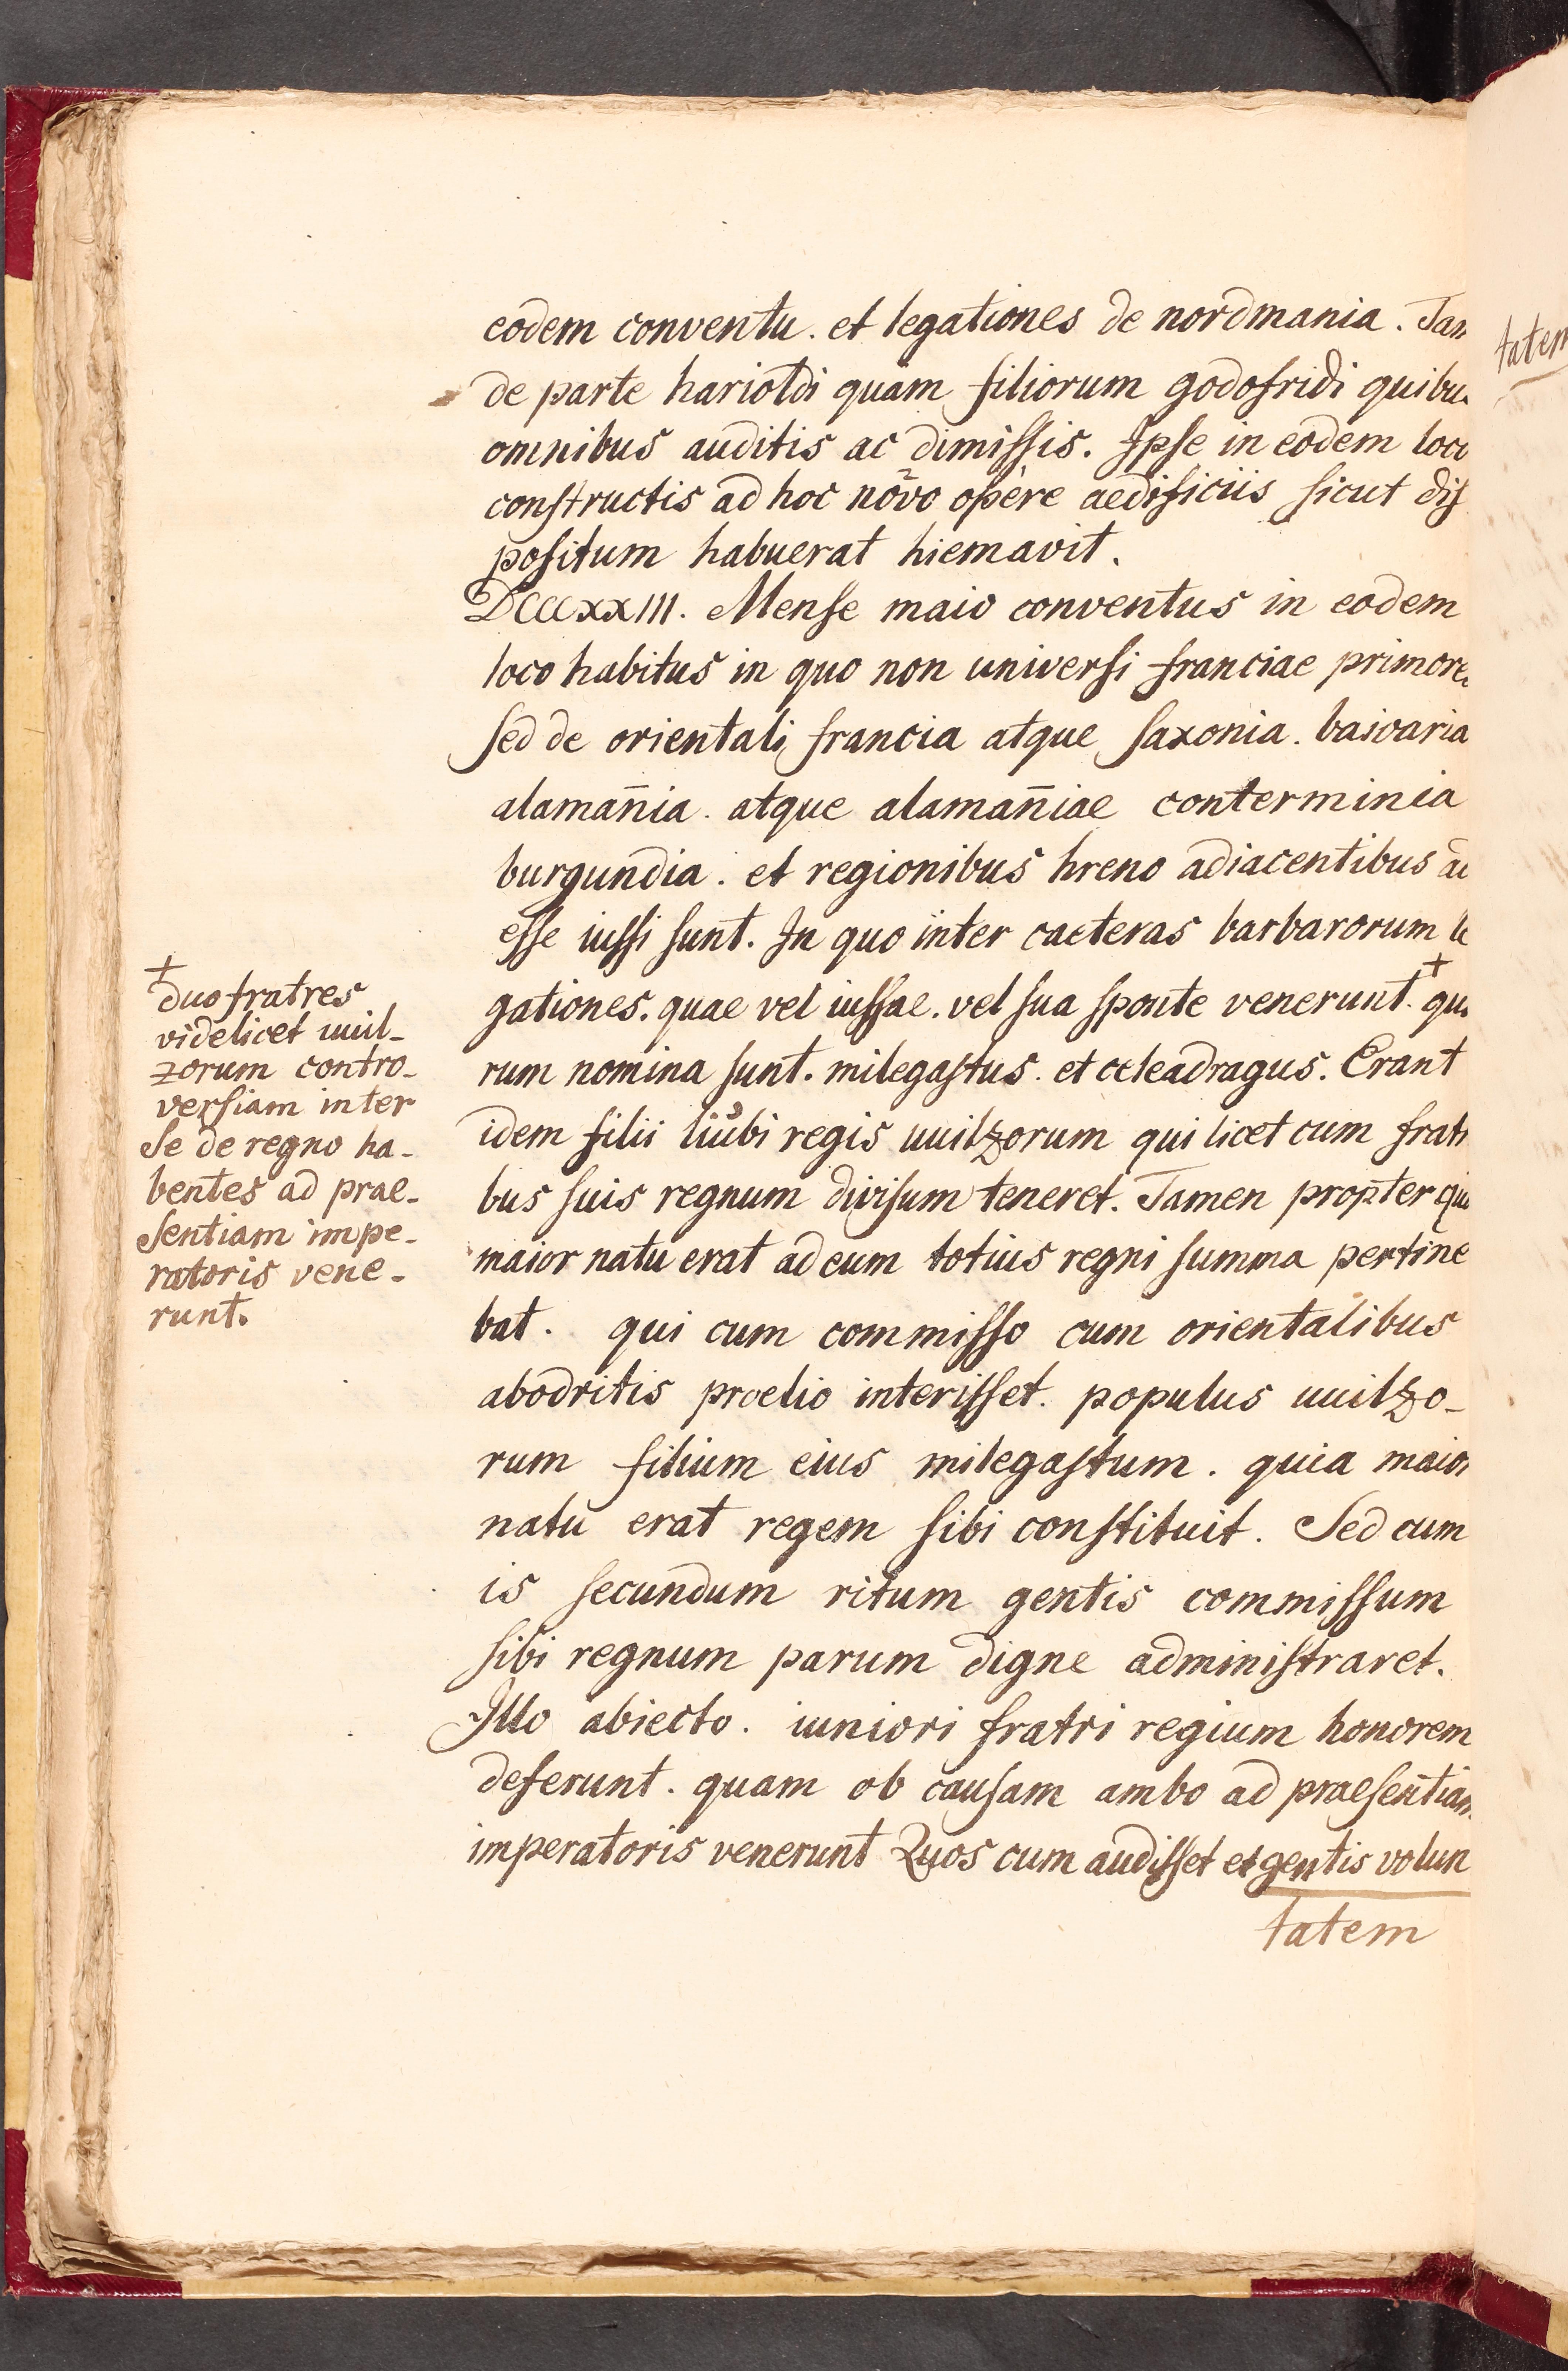 eodem conventu. et legationes de nordmania. Tam
de parte harioldi quam filiorum godofridi quibus
omnibus auditis ac dimiſſis. Ipſe in eodem loco
conſtructis ad hoc novo opere aedificiis ſicut diſ
poſitum habuerat hiemavit.
DCCCXXIII. Menſe maio conventus in eodem
loco habitus in quo non univerſi franciae primores
ſed de orientali francia atque ſaxonia. baioaria
alamañia. atque alamañiae conterminia
burgundia. et regionibus hreno adiacentibus ad
eſſe iuſſi ſunt. In quo inter caeteras barbarorum le
gationes. quae vel iuſſae. vel ſua ſponte venerunt. + quo
rum nomina ſunt. milegaſtus. et celeadragus. Erant
idem filii liubi regis uuilzorum qui licet cum fratri
bus ſuis regnum diviſum teneret. Tamen propter quod
maior natu erat ad eum totius regni ſumma pertine
bat. qui cum commiſſo cum orientalibus
abodritis proelio interiſſet. populus uuilzo-
rum filium eius milegaſtum. quia maior
natu erat regem ſibi conſtituit. Sed cum
is ſecundum ritum gentis commiſſum
ſibi regnum parum digne adminiſtraret.
Illo abiecto. iuniori fratri regium honorem
deferunt. quam ob cauſam ambo ad praeſentiam
imperatoris venerunt Quos cum audiſſet et gentis volun
tatem
+
duo fratres
videlicet uuil-
zorum contro-
verſiam inter
Se de regno ha-
bentes ad prae-
Sentiam impe-
ratoris vene-
runt.
tatem